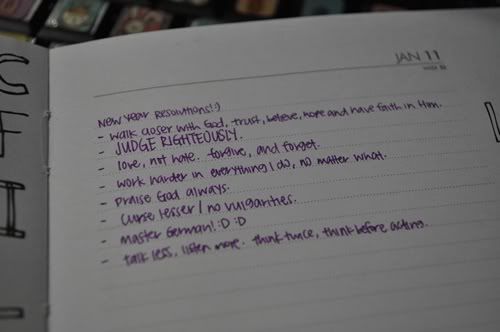 JAN 11
New Year Resolutions!:)
- walk closer with God, trust, believe, hope and have faith in Him.
- JUDGE RIGHTEOUSLY.
- love, not hate. forgive, and forget.
- work harder in everything I do, no matter what.
- praise God always.
- curse lesser / no vulgarities.
- master German! :D :D
- talk less, listen more. think twice, think before acting.